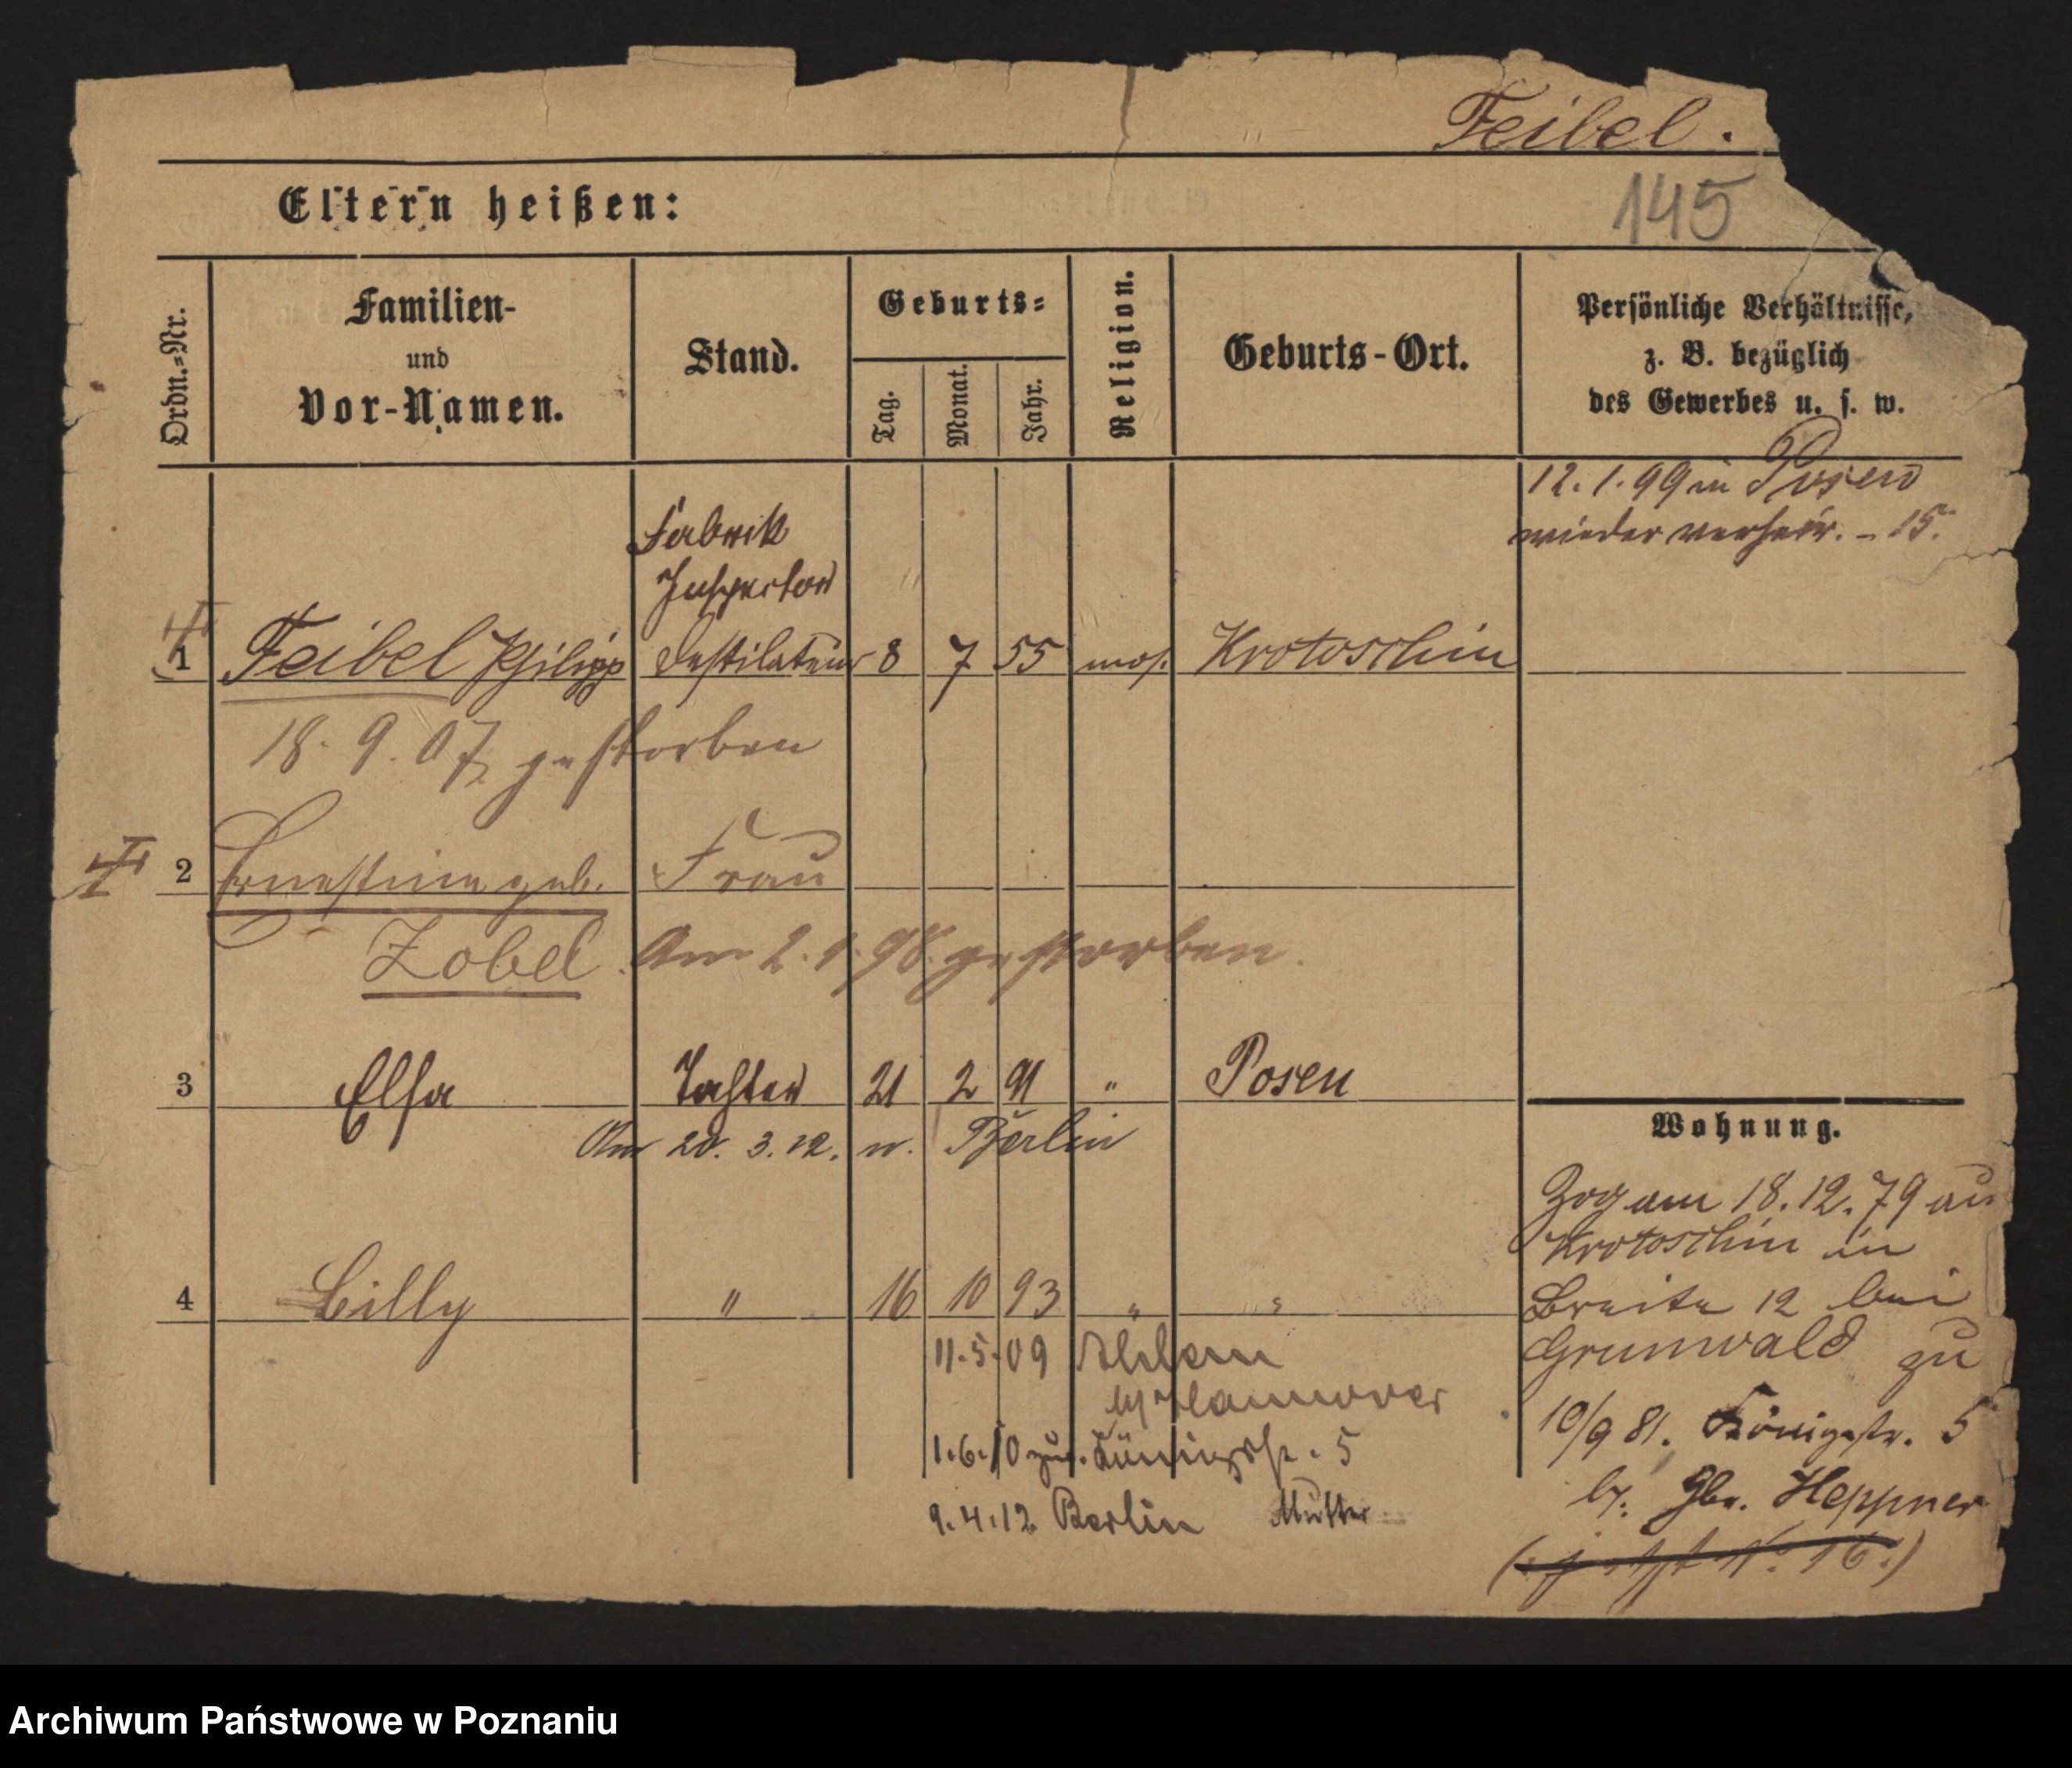 Feibel.
145
Eltern heißen:
Ordn.=Nr.
Familien-
und
Vor-Namen.
Stand.
Geburts=
Tag.
Monat.
Jahr.
Religion.
Geburts-Ort.
Persönliche Verhältnisse,
z. B. bezüglich
des Gewerbes u. s. w.
12. 1. 99 in Posen
wieder verheir. - 15.
Fabrik
Inspector
1 Feibel Philipp Destilateur 8 7 55 mos. Krotoschin
18. 9. 07 gestorben
2 Ernestine geb. Frau
Zobel. Am 2. 1. 98. gestorben.
3 Elsa Tochter 21 2 91 " Posen
Am 20. 3. 12. n. Berlin
4 Cilly " 16 10 93 " "
11.5.09 Ahlem
b/ Hannover
1.6.10 zur. 5
9.4.12 Berlin Mutter
Wohnung.
Zog am 18. 12. 79 aus
Krotoschin in
Breite 12 bei
Grunwald zu
10/9 81. Königstr. 5
b. Gbr. Heppner
(: jetzt No. 16 :)
Archiwum Państwowe w Poznaniu